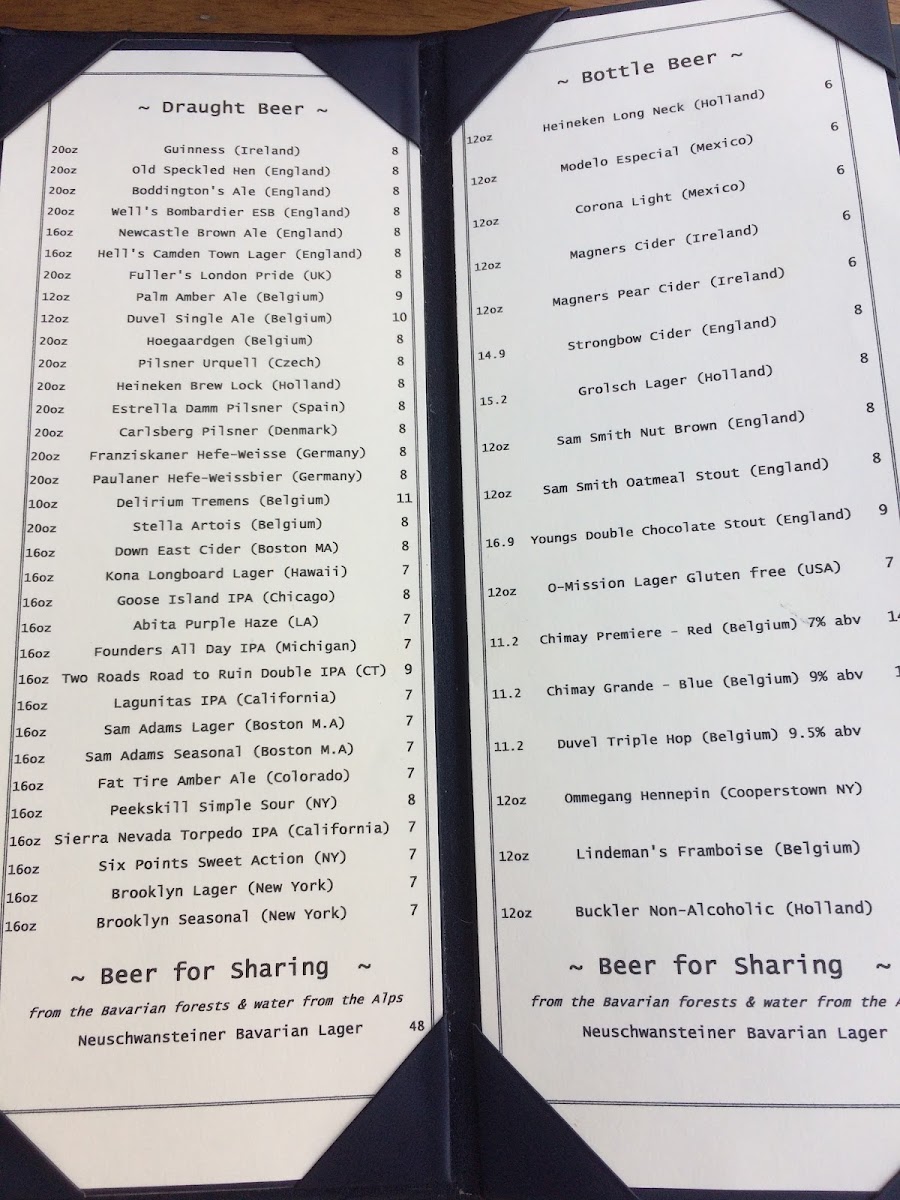 ~ Draught Beer ~
20oz Guinness (Ireland) 8
20oz Old Speckled Hen (England) 8
20oz Boddington's Ale (England) 8
20oz Well's Bombardier ESB (England) 8
16oz Newcastle Brown Ale (England) 8
16oz Hell's Camden Town Lager (England) 8
20oz Fuller's London Pride (UK) 8
12oz Palm Amber Ale (Belgium) 9
12oz Duvel Single Ale (Belgium) 10
20oz Hoegaardgen (Belgium) 8
20oz Pilsner Urquell (Czech) 8
20oz Heineken Brew Lock (Holland) 8
20oz Estrella Damm Pilsner (Spain) 8
20oz Carlsberg Pilsner (Denmark) 8
20oz Franziskaner Hefe-Weisse (Germany) 8
20oz Paulaner Hefe-Weissbier (Germany) 8
10oz Delirium Tremens (Belgium) 11
20oz Stella Artois (Belgium) 8
16oz Down East Cider (Boston MA) 8
16oz Kona Longboard Lager (Hawaii) 7
16oz Goose Island IPA (Chicago) 8
16oz Abita Purple Haze (LA) 7
16oz Founders All Day IPA (Michigan) 7
16oz Two Roads Road to Ruin Double IPA (CT) 9
16oz Lagunitas IPA (California) 7
16oz Sam Adams Lager (Boston M.A) 7
16oz Sam Adams Seasonal (Boston M.A) 7
16oz Fat Tire Amber Ale (Colorado) 7
16oz Peekskill Simple Sour (NY) 8
16oz Sierra Nevada Torpedo IPA (California) 7
16oz Six Points Sweet Action (NY) 7
16oz Brooklyn Lager (New York) 7
16oz Brooklyn Seasonal (New York) 7
~ Beer for Sharing ~
from the Bavarian forests & water from the Alps
Neuschwansteiner Bavarian Lager 48
~ Bottle Beer ~
12oz Heineken Long Neck (Holland) 6
12oz Modelo Especial (Mexico) 6
12oz Corona Light (Mexico) 6
12oz Magners Cider (Ireland) 6
12oz Magners Pear Cider (Ireland) 6
14.9 Strongbow Cider (England) 8
15.2 Grolsch Lager (Holland) 8
12oz Sam Smith Nut Brown (England) 8
12oz Sam Smith Oatmeal Stout (England) 8
16.9 Youngs Double Chocolate Stout (England) 9
12oz O-Mission Lager Gluten free (USA) 7
11.2 Chimay Premiere - Red (Belgium) 7% abv
11.2 Chimay Grande - Blue (Belgium) 9% abv
11.2 Duvel Triple Hop (Belgium) 9.5% abv
12oz Ommegang Hennepin (Cooperstown NY)
12oz Lindeman's Framboise (Belgium)
12oz Buckler Non-Alcoholic (Holland)
~ Beer for Sharing ~
from the Bavarian forests & water from the
Neuschwansteiner Bavarian Lager